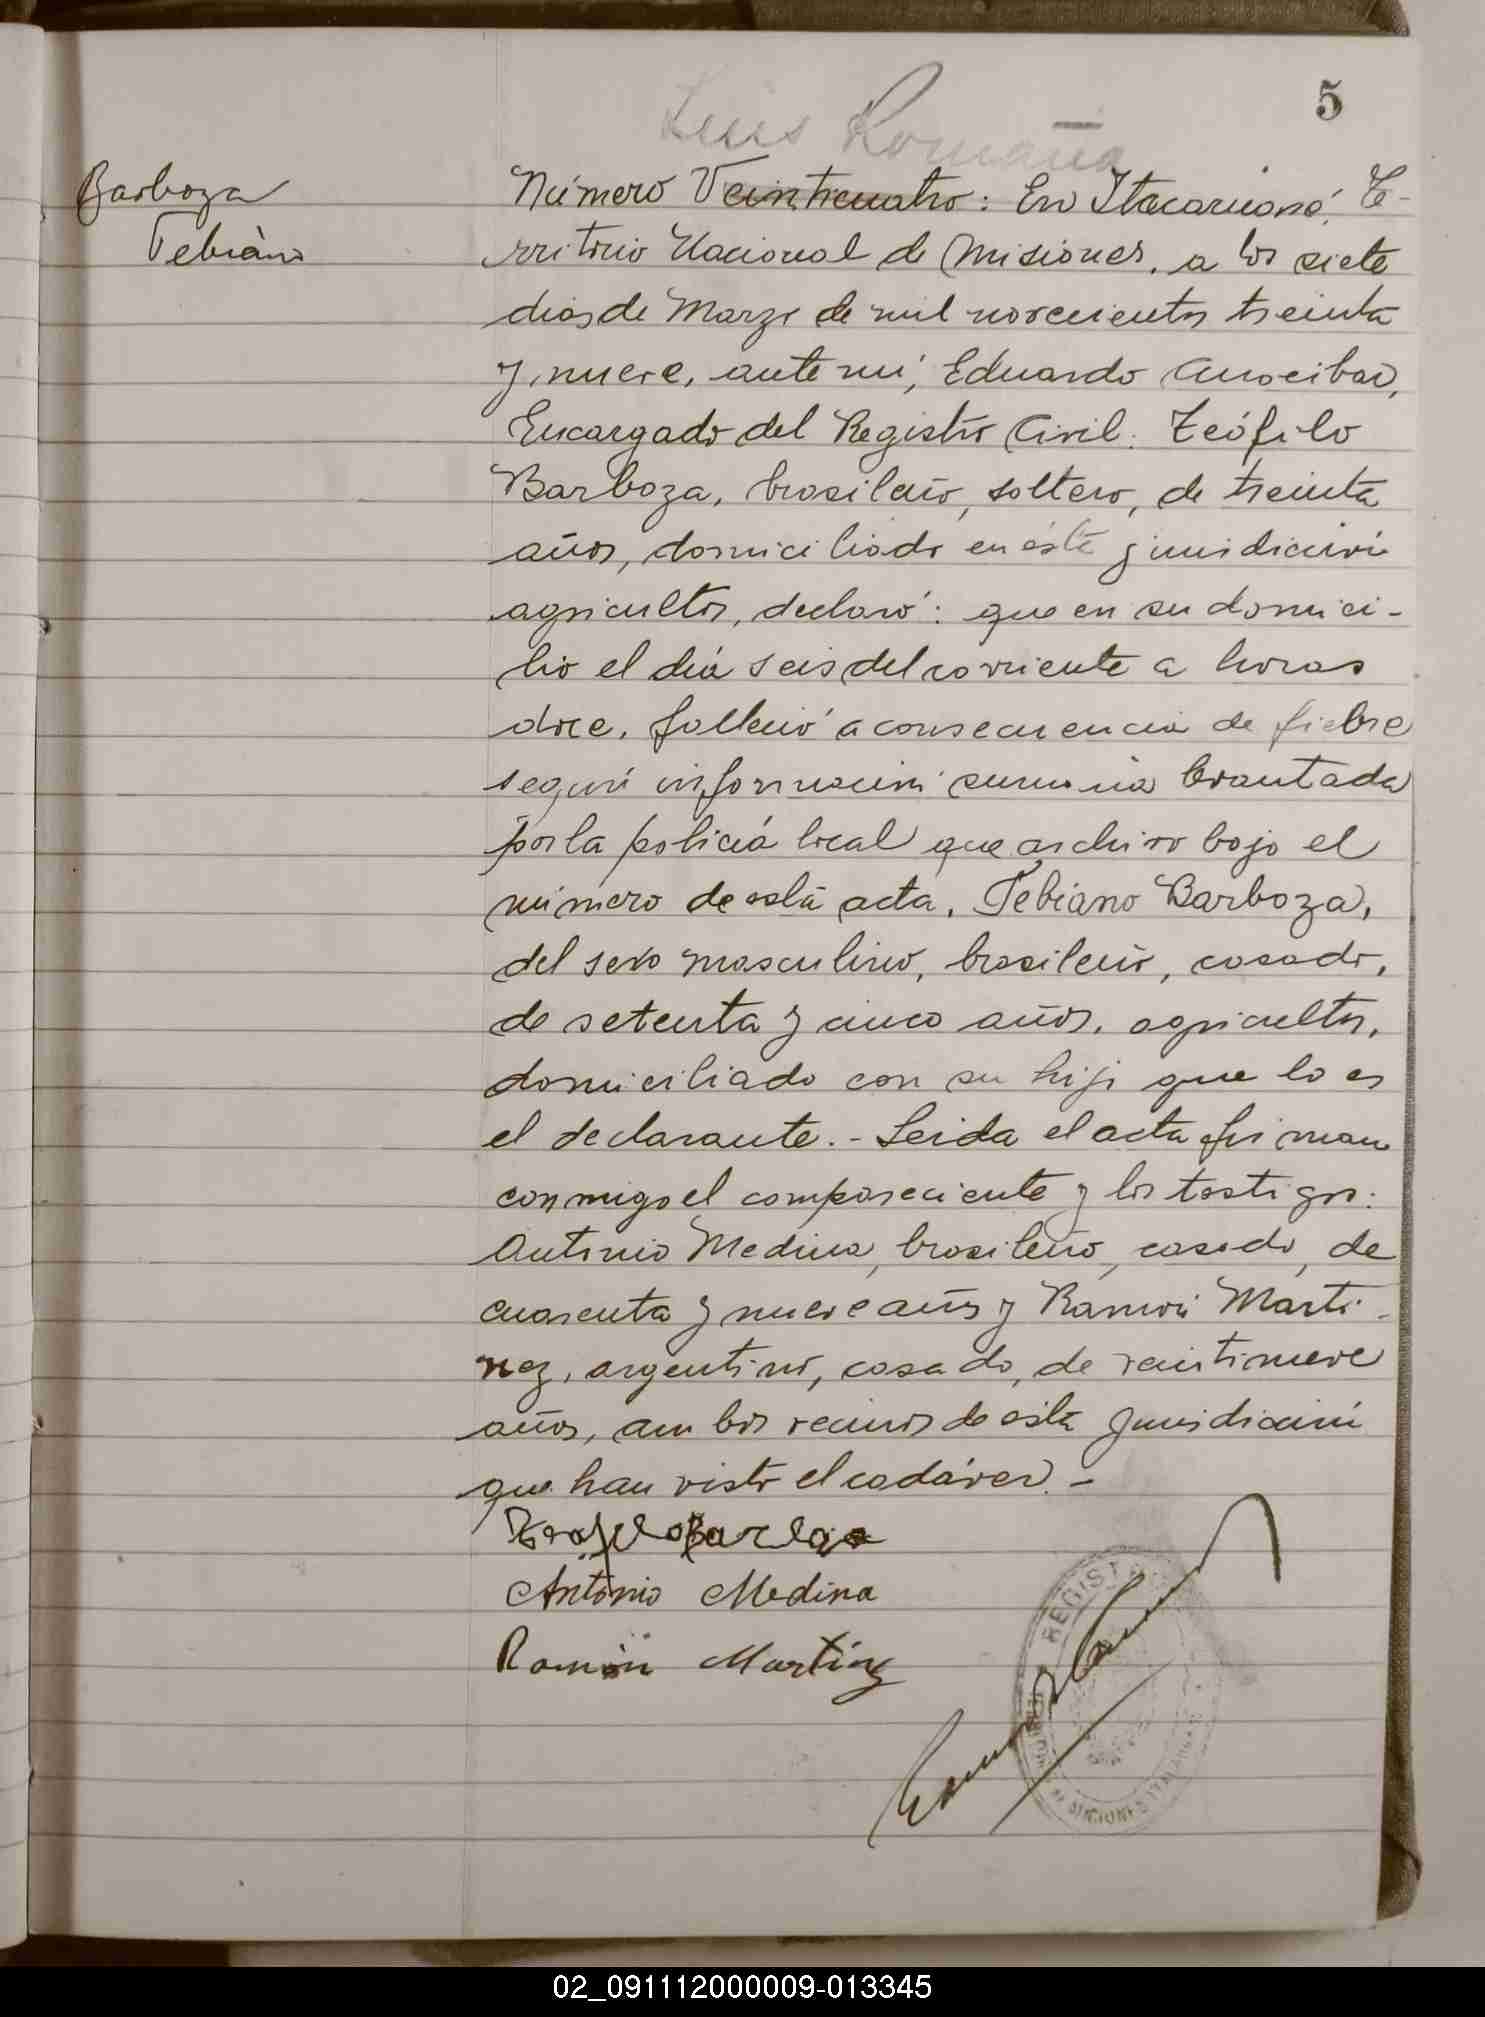 5
Luis Romaña
Barboza
Febiano
Número Veinticuatro: En Itacaruaré, Te-
rritorio Nacional de Misiones, a los siete
dias de Marzo de mil novecientos treinta
y nueve, ante mí, Eduardo
Encargado del Registro Civil: Teófilo
Barboza, brasileño, soltero, de treinta
años, domiciliado en ésta jurisdicción
agricultor, declaró: que en su domici-
lio el día seis del corriente a horas
doce, falleció a consecuencia de fiebre
según información sumaria levantada
por la policía local que archivo bajo el
número de esta acta, Febiano Barboza,
del sexo masculino, brasileño, casado,
de setenta y cinco años, agricultor,
domiciliado con su hijo que lo es
el declarante.- Leida el acta firman
conmigo el compareciente y los testigos:
Antonio Medina, brasileño, casado, de
cuarenta y nueve años y Ramón Marti-
nez, argentino, casado, de veintinueve
años, ambos vecinos de esta jurisdicción
que han visto el cadáver.-
Antonio Medina
Ramón Martinz
REGIST
MISIONES
02_091112000009-013345